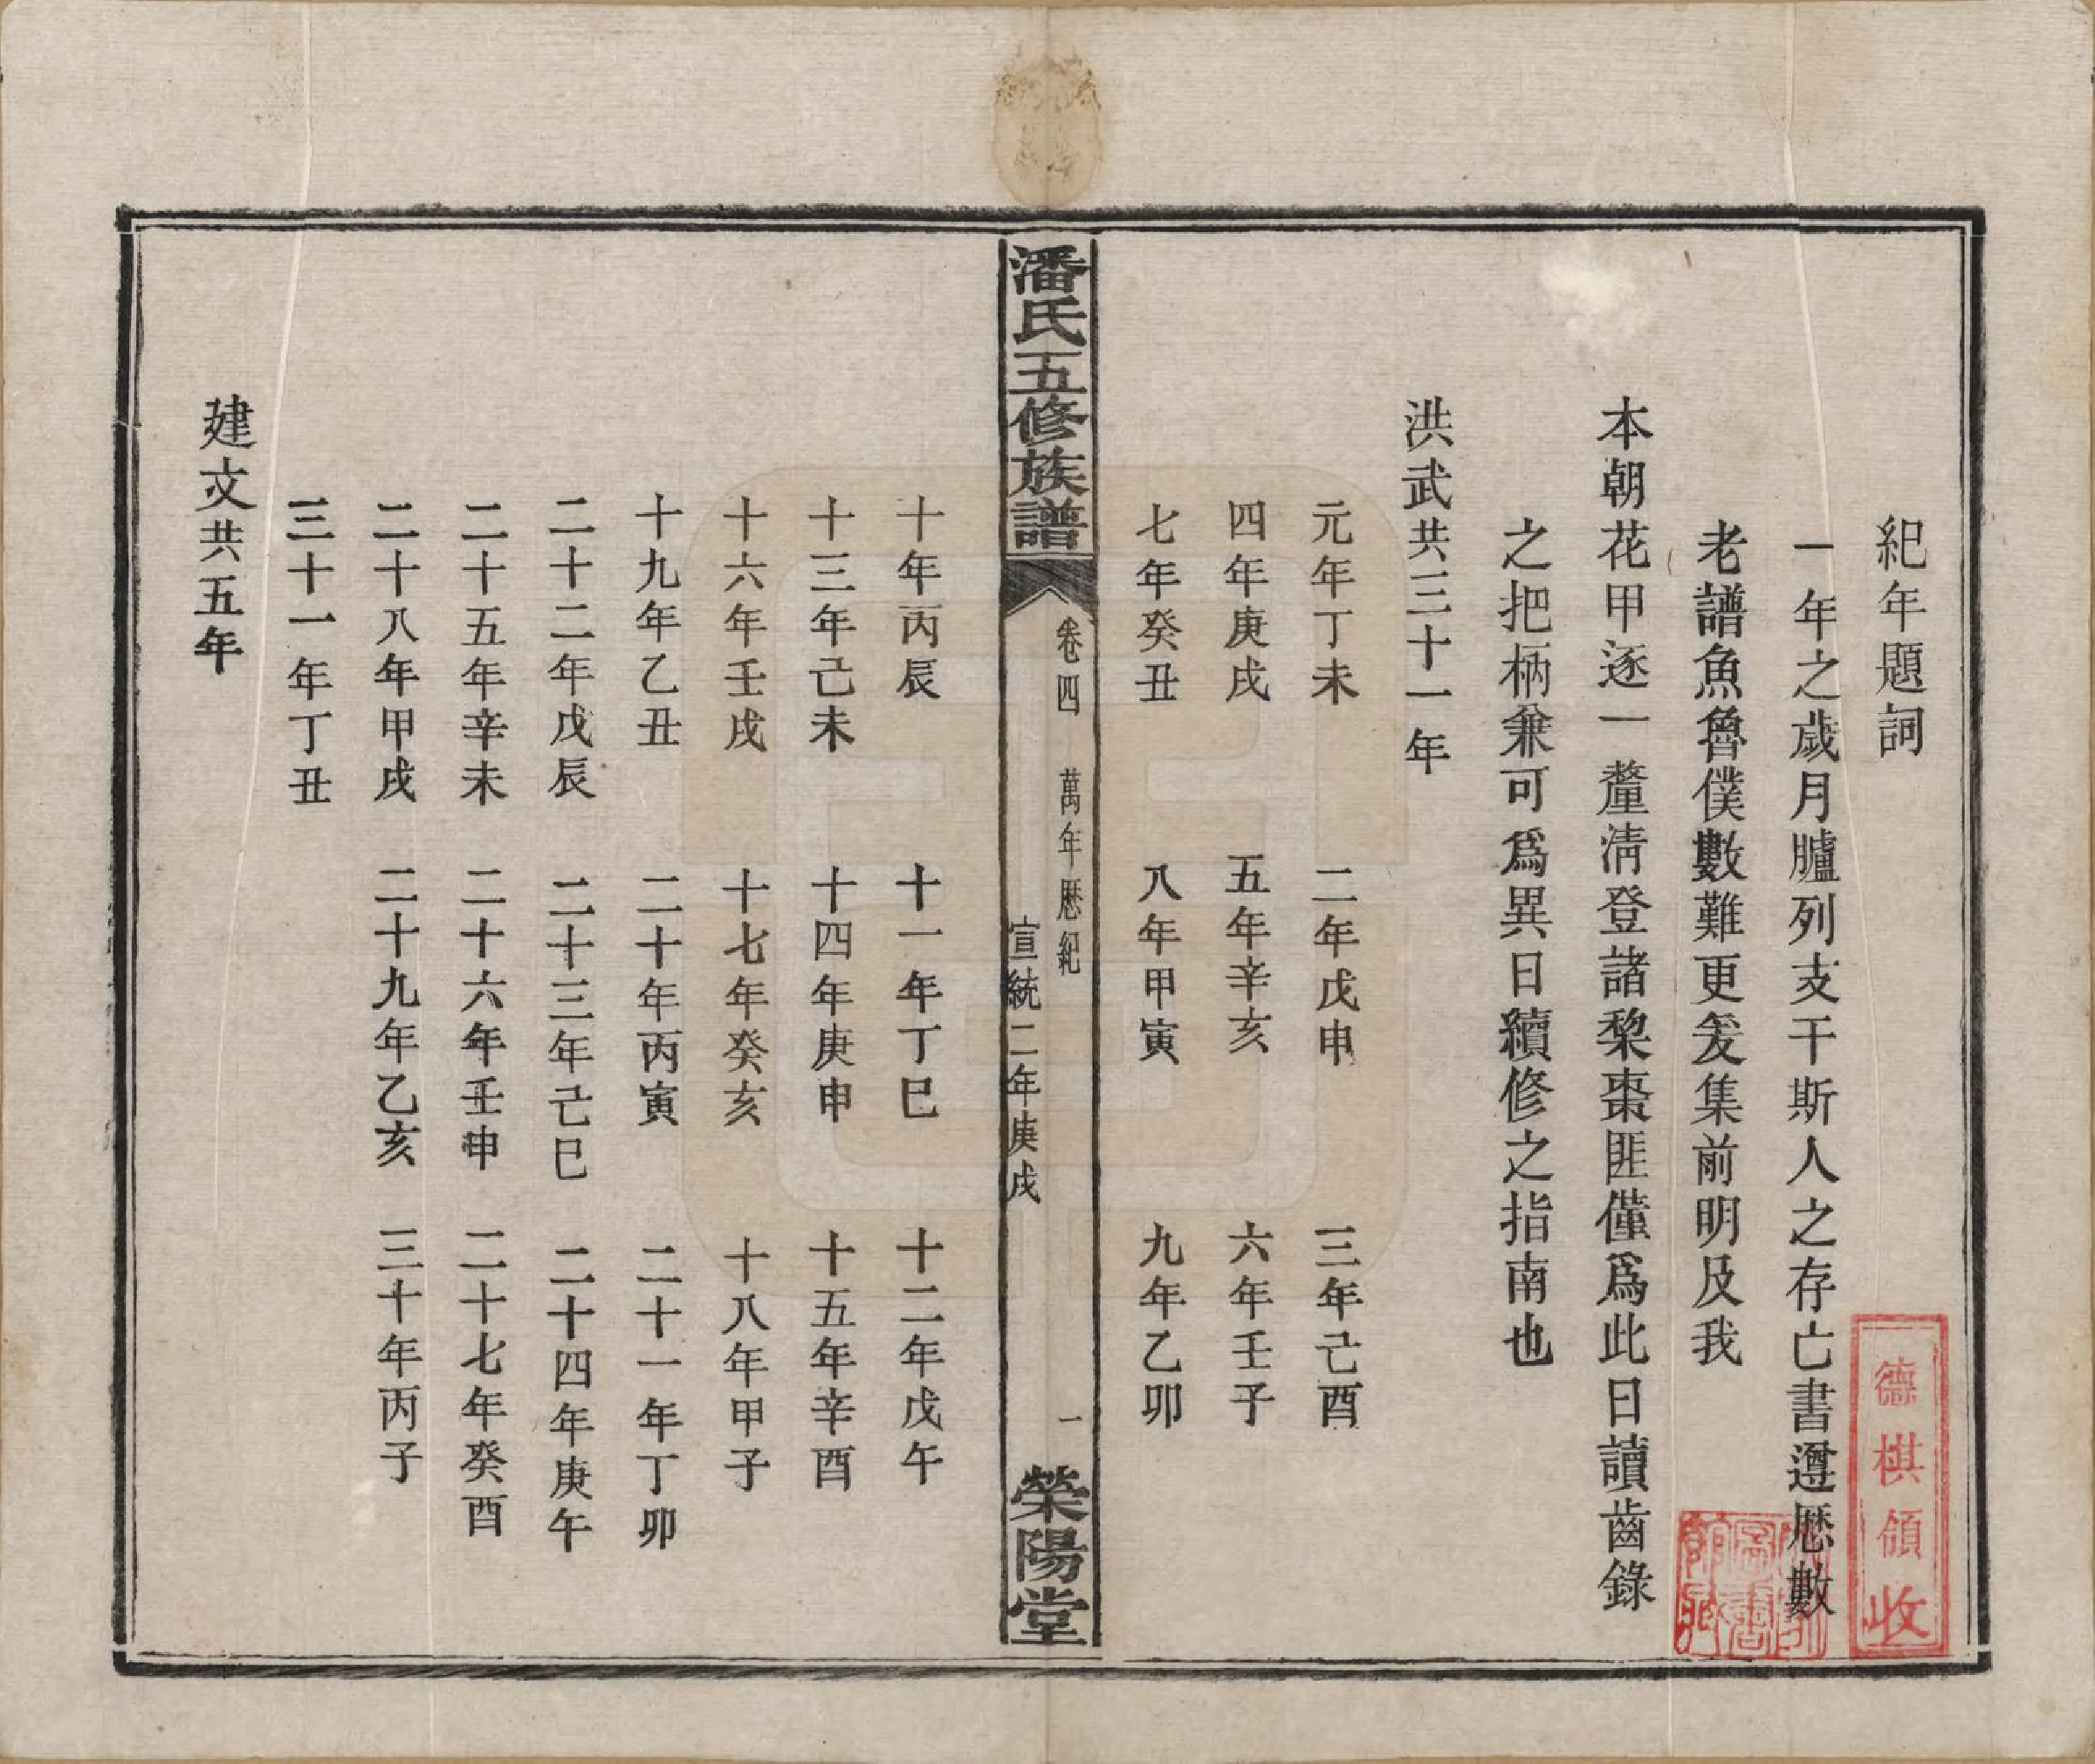 紀年題詞
一年之歲月臚列支干斯人之存亡書遵厯數
老譜魚魯僕數難更爰集前明及我
本朝花甲逐一釐清登諸棃棗匪僅爲此日讀齒錄
之把柄兼可爲異日續修之指南也
洪武共三十一年
元年丁未 二年戊申 三年己酉
四年庚戌 五年辛亥 六年壬子
七年癸丑 八年甲寅 九年乙卯
潘氏五修族譜 卷四 萬年厯紀 一 滎陽堂
宣統二年庚戌
十年丙辰 十一年丁巳 十二年戊午
十三年己未 十四年庚申 十五年辛酉
十六年壬戌 十七年癸亥 十八年甲子
十九年乙丑 二十年丙寅 二十一年丁卯
二十二年戊辰 二十三年己巳 二十四年庚午
二十五年辛未 二十六年壬申 二十七年癸酉
二十八年甲戌 二十九年乙亥 三十年丙子
三十一年丁丑
建文共五年
德棋領收